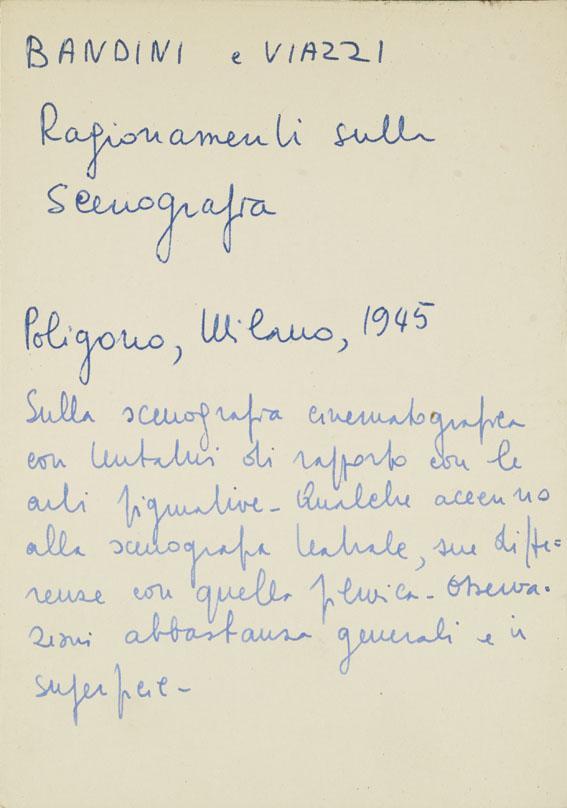 BANDINI e VIAZZI
Ragionamenti sulla
Scenografia
Poligono, Milano, 1945
Sulla scenografia cinematografica
con tentativi di rapporto con le
arti figurative - Qualche accenno
alla scenografia teatrale, sue diffe=
renze con quella filmica - Osserva-
zioni abbastanza generali e in
superficie -